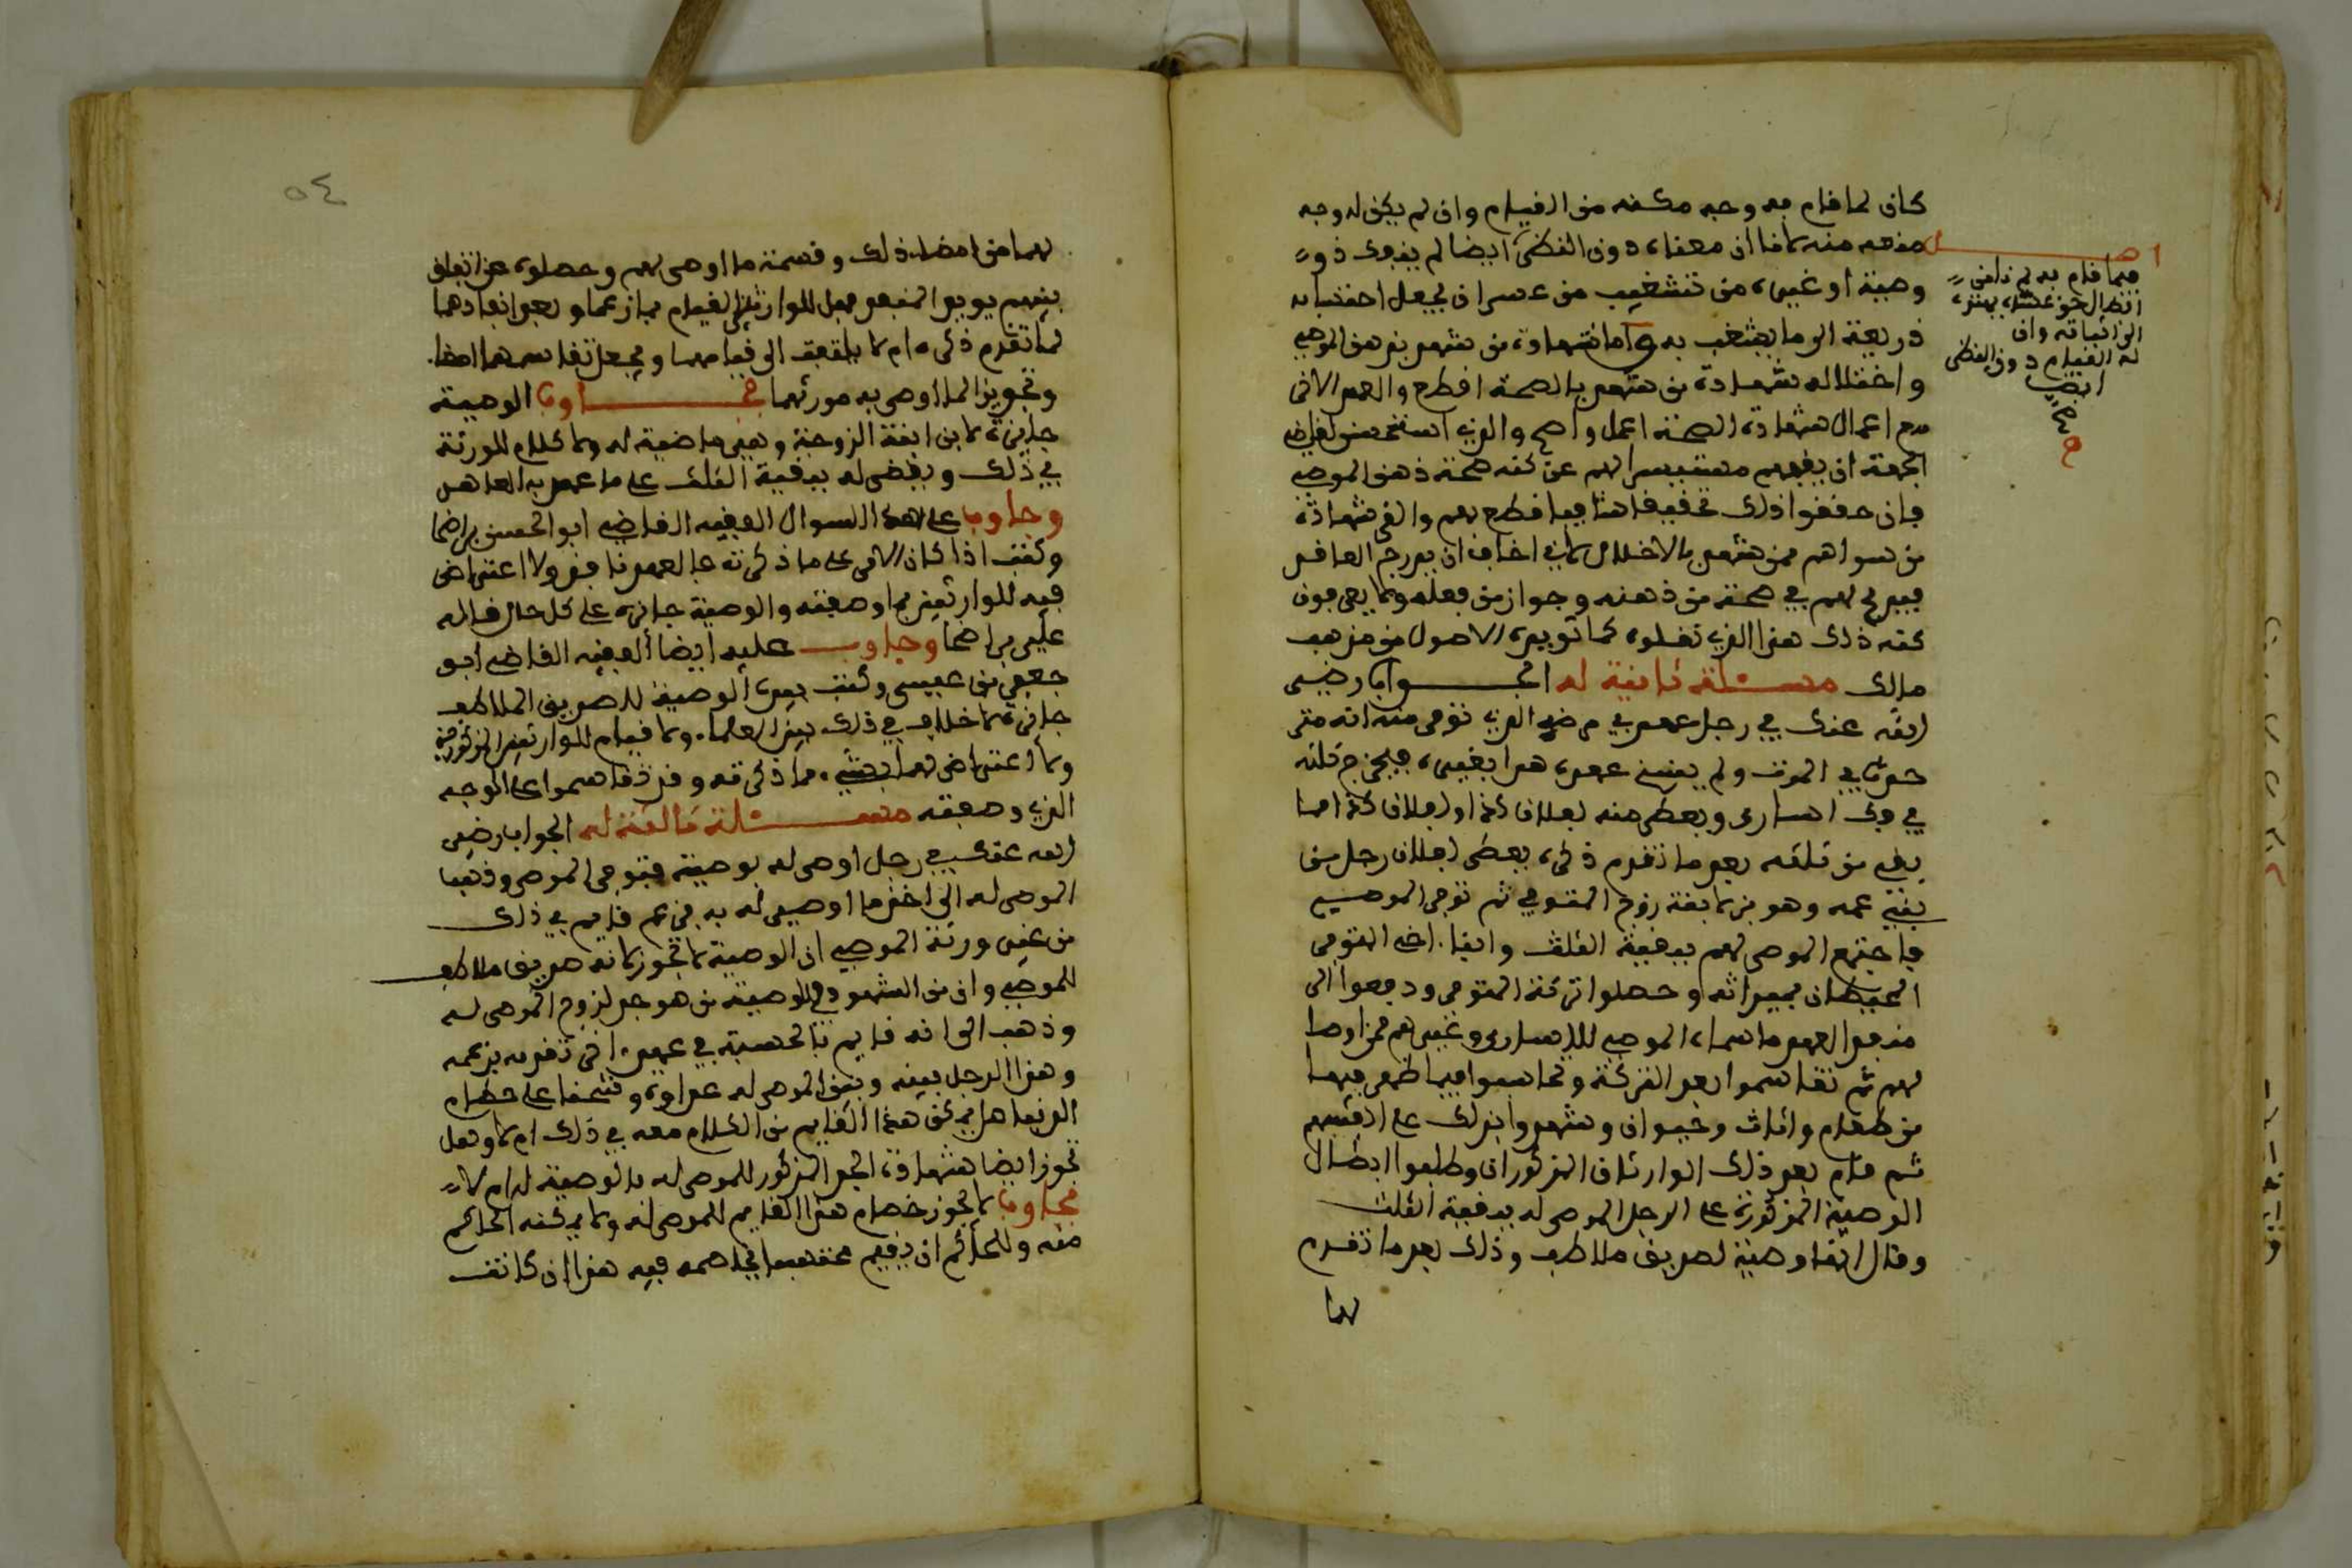 كان لما قام به وجه مكنه من القيام وان لم يكن له وجه
منعه منه لاننا ان معناه دون النظر ايضا لم يفقد ذو
وصية او غيره من تشغيب من عسى ان يجعل احتسابه
ذريعة الى ما يشغب به واما شهادة من شهد بذهن الموصي
واختلاله شهادة من شهد بالصحة اقطع والعمل الاخر
مع اعمال شهادة الصحة اعمل واصح والذي استحسن لقاضي
الجهة ان يفهم مستفسرا لهم عن كنه صحة ذهن الموصي
فان حققوا ذلك تحقيقا شافيا قطع بهم والغى شهادة
من سواهم ممن شهد بالاختلال لاني اخاف ان يدرج العاقد
فيدرج لهم في صحة من ذهنه وجواز من فعله ولا يعرفون
كنه ذلك هذا الذي تقلده كما توجبه الاصول من مذهب
مالك مسئلة ثانية له الجواب رضي
الله عنك في رجل عهد في مرضه الذي توفي منه انه متى
حدث الموت ولم يفسخ عهده هذا بغيره فيخرج ثلثه
في فك اسارى ويعطى منه لفلان كذا ولفلان كذا وما
بقي من ثلثه بعد ما تقدم ذكره يعطى لفلان رجل من
بني عمه وهو بن لابنة زوج المتوفى ثم توفي الموصي
فاجتمع الموصى لهم ببقية الثلث وابنا اخي المتوفى
المحيطان بميراثه وحصلوا تركة المتوفى ودفعوا الى
منفذ العهد ما سماه الموصي للاسارى وغيرهم ممن اوصا
لهم ثم تقاسموا بعد التركة وتحاسبوا فيما ظهر فيها
من طعام واثاث وحيوان وشهدوا بذلك على انفسهم
ثم قام بعد ذلك الوارثان المذكوران وطلبوا ابطال
الوصية المذكورة على الرجل الموصى له ببقية الثلث
وقال انها وصية لصديق ملاطف وذلك بعد ما تقدم
لهما
اصل
فيما قام به لم تامن
انتقال حق عسى بهذه
الى اثباته وان
له القيام دون النظر
ايضا
صح
٥٤
لهما من امضاء ذلك وقسمة ما اوصى لهم وحصلوه عن اتفاق
بينهم يوجد المنفد فهل للوارثين القيام فيما زعما وبعد انفاذهما
لما تقدم ذكره ام لا يلتفت الى قيامهما ويجعل تقاسمهما امضاء
وتجويزا لما اوصى به مورثهما فجاوب الوصية
جايزة لابن ابنة الزوجة وهي ماضية له ولا كلام للورثة
في ذلك ويقضى له ببقية الثلث على ما عهد به العاهد
وجاوب على هذا السوال الفقيه القاضي ابو الحسن بن اضحا
وكتب اذا كان الامر على ما ذكرته فالعهد نافذ ولا اعتراض
فيه للوارثين بما وصفته والوصية جايزة على كل حال قاله
علي بن اضحا وجاوب عليه ايضا الفقيه القاضي ابو
جعفر بن عيسى وكتب بيده الوصية للصديق الملاطف
جايزة لا خلاف في ذلك بين العلماء ولا قيام للوارثين المذكورين
ولا اعتراض لهما بشيء مما ذكرته وقد تقاسموا على الوجه
الذي وصفته مسئلة ثالثة له الجواب رضي
الله عنك في رجل اوصى له بوصية فتوفي الموصي وذهب
الموصى له الى اخذ ما اوصي له به فزعم قايم في ذلك
من غير ورثة الموصي ان الوصية لا تجوز لانه صديق ملاطف
للموصي وان من الشهود في الوصية من هو جد لزوج الموصى له
وذهب الى انه قايم بالحسبة في عهد اخر تقدمه بزعمه
وهذا الرجل بينه وبين الموصى له عداوة وشحنا على حطام
الدنيا هل يمكن هذا القايم من الكلام معه في ذلك ام لا وهل
تجوز ايضا شهادة الجد المذكور للموصى له بالوصية له ام لا
فجاوب لا يجوز خصام هذا القايم للموصى له ولا يمكنه الحاكم
منه وللحاكم ان يقيم محتسبا يخاصمه فيه هذا ان كانت